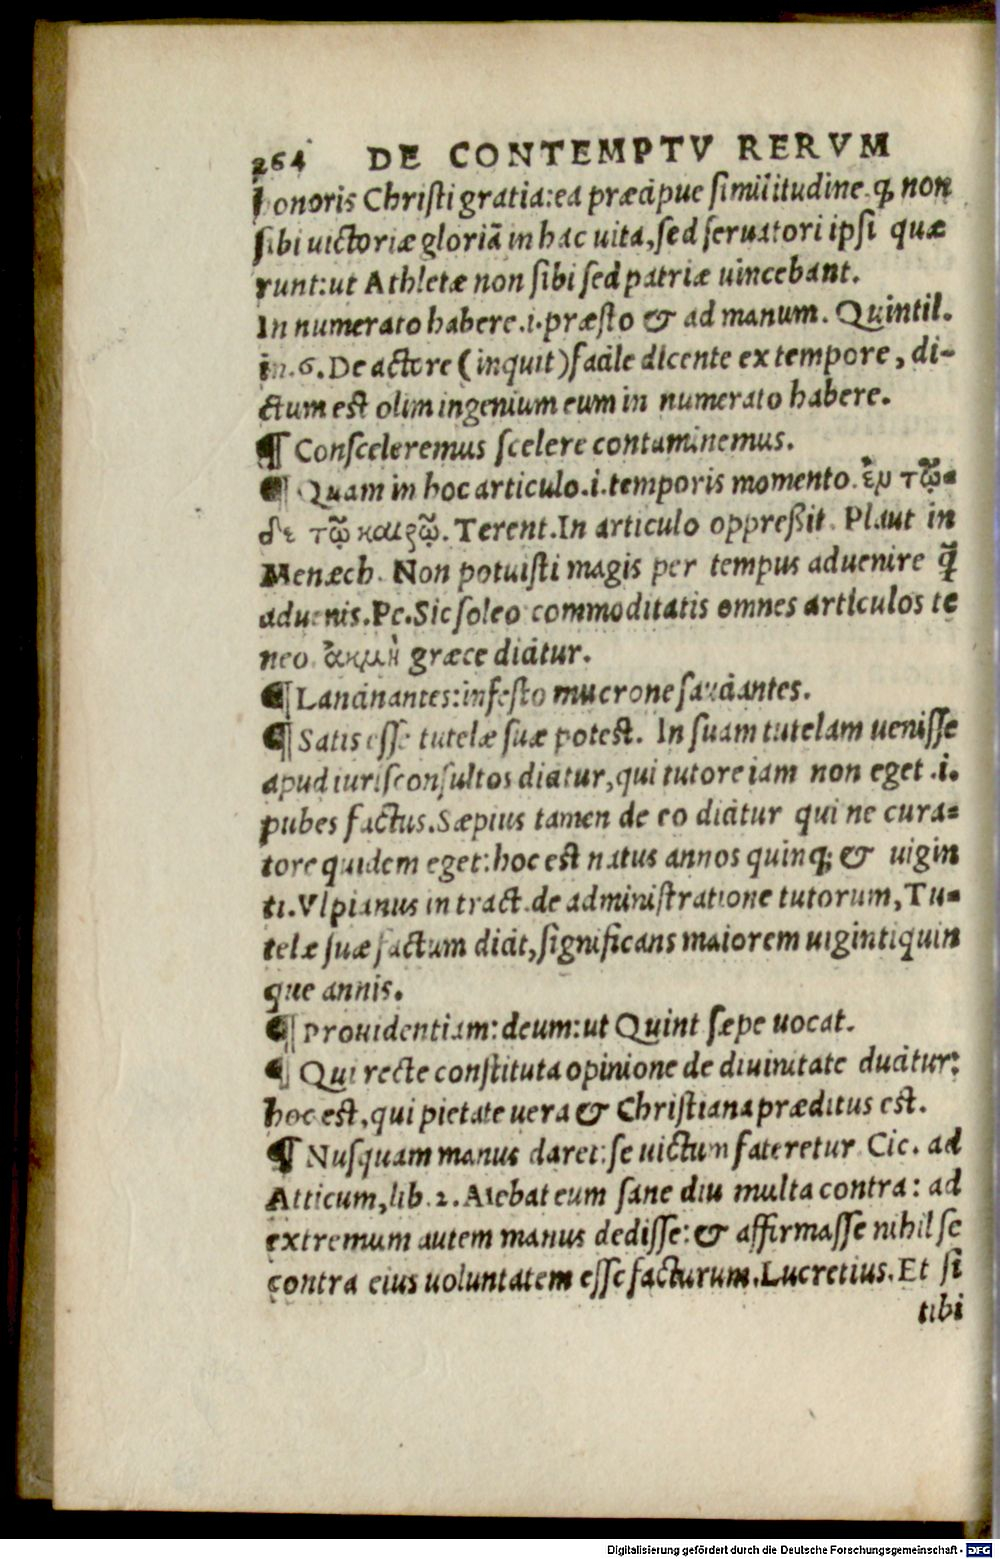 264 DE CONTEMPTV RERVM
honoris Christi gratia: ea præcipue similitudine. ꝙ non
sibi uictoriæ gloriā in hac uita, sed seruatori ipsi quæ
runt: ut Athletæ non sibi sed patriæ uincebant.
In numerato habere .i. præsto & ad manum. Quintil.
in .6. De actore (inquit) facile dicente ex tempore, di-
ctum est olim ingenium eum in numerato habere.
¶ Consceleremus scelere contaminemus.
¶ Quam in hoc articulo .i. temporis momento. ἐν τῷ-
δε τῷ καιρῷ. Terent. In articulo oppreßit. Plaut in
Menæch. Non potuisti magis per tempus aduenire ꝙ̄
aduenis. Pe. Sic soleo commoditatis omnes articulos te
neo. ἀκμὴ græce dicitur.
¶ Lancinantes: infesto mucrone sauciantes.
¶ Satis esse tutelæ suæ potest. In suam tutelam uenisse
apud iurisconsultos dicitur, qui tutore iam non eget .i.
pubes factus. Sæpius tamen de eo dicitur qui ne cura-
tore quidem eget: hoc est natus annos quinq; & uigin
ti. Vlpianus in tract. de administratione tutorum, Tu-
telæ suæ factum dicit, significans maiorem uigintiquin
que annis.
¶ Prouidentiam: deum: ut Quint sæpe uocat.
¶ Qui recte constituta opinione de diuinitate ducitur:
hoc est, qui pietate uera & Christiana præditus est.
¶ Nusquam manus daret: se uictum fateretur Cic. ad
Atticum, lib. 2. Aiebat eum sane diu multa contra: ad
extremum autem manus dedisse: & affirmasse nihil se
contra eius uoluntatem esse facturum. Lucretius. Et si
tibi
Digitalisierung gefördert durch die Deutsche Forschungsgemeinschaft - DFG